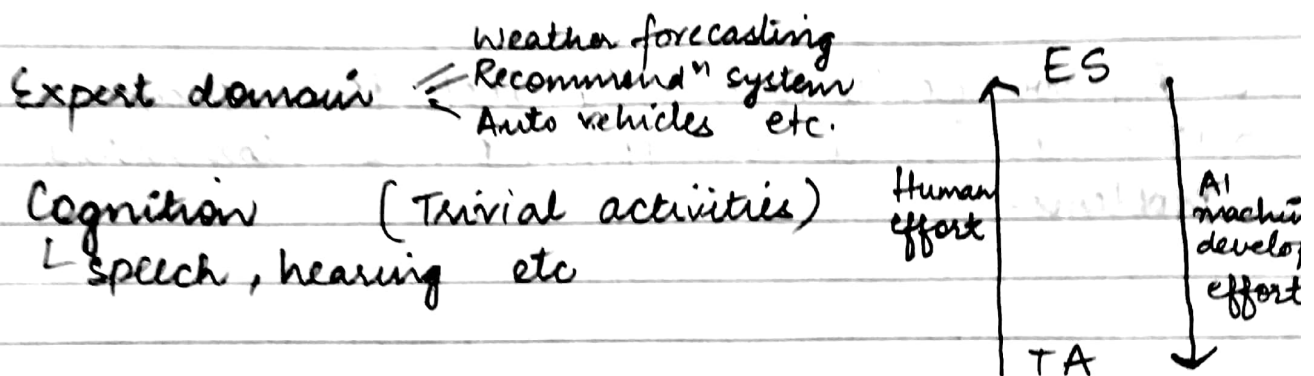 Weather forecasting
Expert domain Recommendⁿ system
Auto vehicles etc.
Cognition (Trivial activities)
speech, hearing etc
ES
Human
effort
AI
machin
develop
effort
TA